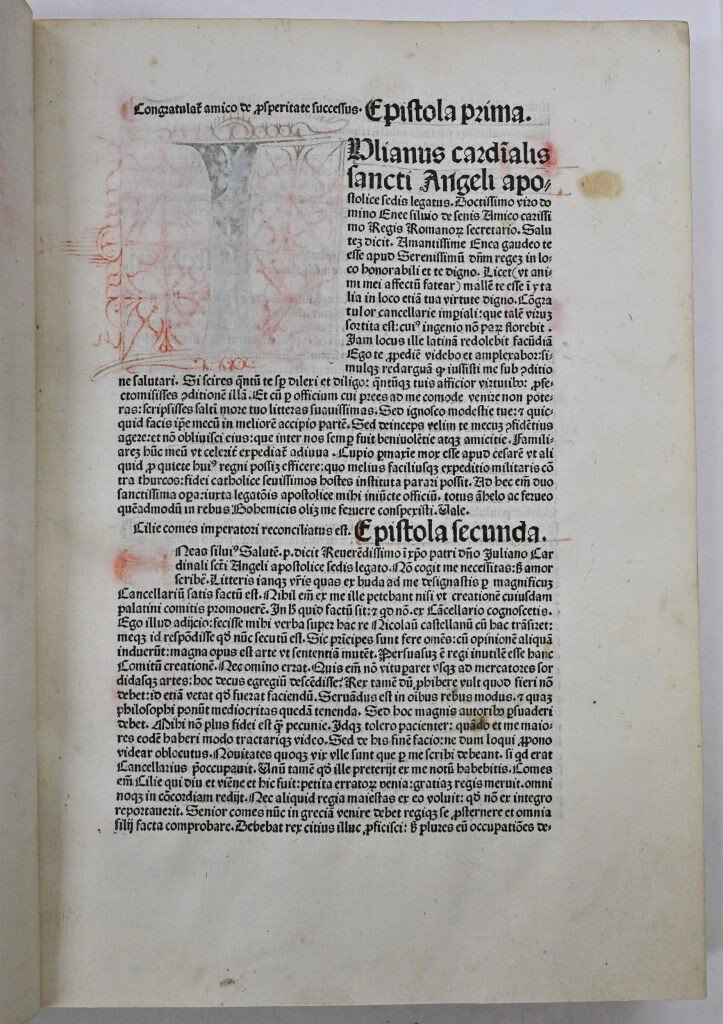 Congratulat̄ amico de ꝓsperitate successus. Epistola prima.
Vlianus cardīalis
sancti Angeli apo⸗
stolice sedis legatus. Doctissimo viro do
mino Enee siluio de senis Amico carissi
mo Regis Romanoꝝ secretario. Salu
teꝫ dicit. Amantissime Enea gaudeo te
esse apud Serenissimū dn̄m regeꝫ in lo⸗
co honorabili et te digno. Licet (vt ani⸗
mi mei affectū fatear) mallē te esse ī ytа
lia in loco etiā tua virtute digno. Cōgra
tulor cancellarie imꝑiali: que talē viruꝫ
sortita est: cuiꝰ ingenio nō paꝝ florebit.
Jam locus ille latinā redolebit facūdiā
Ego te ꝓpediē videbo et amplexabor: si⸗
mulqꝫ redarguā ꝙ iussisti me sub ꝯditio
ne salutari. Si scires qn̄tū te sꝑ dilexi et diligo: qn̄tūqꝫ tuis afficior virtutibꝰ: ꝓfe⸗
cto misisses ꝯditionē illā. Et cū ꝑ officium cui prees ad me comode venire non pote⸗
ras: scripsisses saltī more tuo litteras suauissimas. Sed ignosco modestie tue: ⁊ quic⸗
quid facis ip̄e mecū in meliorē accipio partē. Sed deinceps velim te mecuꝫ ꝯfidētius
agere: et nō obliuisci eius: que inter nos semꝑ fuit beniuolētie atqꝫ amicitie. Famili⸗
areꝫ hūc meū vt celerit̄ expediat̄ adiuua. Cupio ꝑmaxīe mox esse apud cesarē vt ali
quid ꝓ quiete huiꝰ regni possiꝫ efficere: quo melius faciliusqꝫ expeditio militaris cō
tra thurcos: fidei catholice seuissimos hostes instituta parari possit. Ad hec em̄ duo
sanctissima oꝑa: iuxta legatōis apostolice mihi iniūcte officiū, totus āhelo ac ferueo
queadmodū in rebus Bohemicis oliꝫ me feruere conspexisti. Vale.
Cilie comes imperatori reconciliatus est. Epistola secunda.
Neas siluiꝰ Salutē. p. dicit Reuerēdissimo ī xp̄o patri dn̄o Juliano Car
dinali sct̄i Angeli apostolice sedis legato. Nō cogit me necessitas: sꝫ amor
scribē. Litteris ianqꝫ vr̄is quas ex buda ad me designastis ꝑ magnificuꝫ
Cancellariū satis factū est. Nihil em̄ ex me ille petebant nisi vt creationē cuiusdam
palatini comitis promouerē. In hꝰ quid factū sit: ⁊ qd nō. ex Cācellario cognoscetis.
Ego illud adijcio: fecisse mihi verba super hac re Nicolaū castellanū cū hac trāsiret:
meqꝫ id respōdisse qd nūc secutū est. Sic pricipes sunt fere omēs: cū opinionē aliquā
induerūt: magna opus est arte vt sententiā mutēt. Persuasuꝫ ē regi inutile esse hanc
Comitū creationē. Nec omino errat. Quis em̄ nō vituparet vsqꝫ ad mercatores sor
didasqꝫ artes: hoc decus egregiū descēdisse? Rex tamē dū ꝓhibere vult quod fieri nō
debet: id etiā vetat qd fuerat faciendū. Seruādus est in oībus rebus modus. ⁊ quaꝫ
philosophi ponūt mediocritas quedā tenenda. Sed hoc magnis autoribꝰ ꝑsuaderi
debet. Mihi nō plus fidei est ꝙ̄ pecunie. Idqꝫ tolero pacienter: quādo et me maio⸗
res eodē haberi modo tractariqꝫ video. Sed de his finē facio: ne dum loqui ꝓpono
videar oblocutus. Nouitates quoqꝫ vix vlle sunt que ꝑ me scribi debeant. si qd erat
Cancellarius p̄occupauit. Vnū tamē qd ille preterijt ex me notū habebitis. Comes
em̄ Cilie qui diu et viēne et hic fuit: petita erratoꝝ venia: gratiaꝫ regis meruit. omni
noqꝫ in cōcordiam redijt. Nec aliquid regia maiestas ex eo voluit: qd nō ex integro
reportauerit. Senior comes nūc in greciā venire debet regiqꝫ se ꝓsternere et omnia
filij facta comprobare. Debebat rex citius illuc ꝓficisci: sꝫ plures eū occupatiōes de⸗